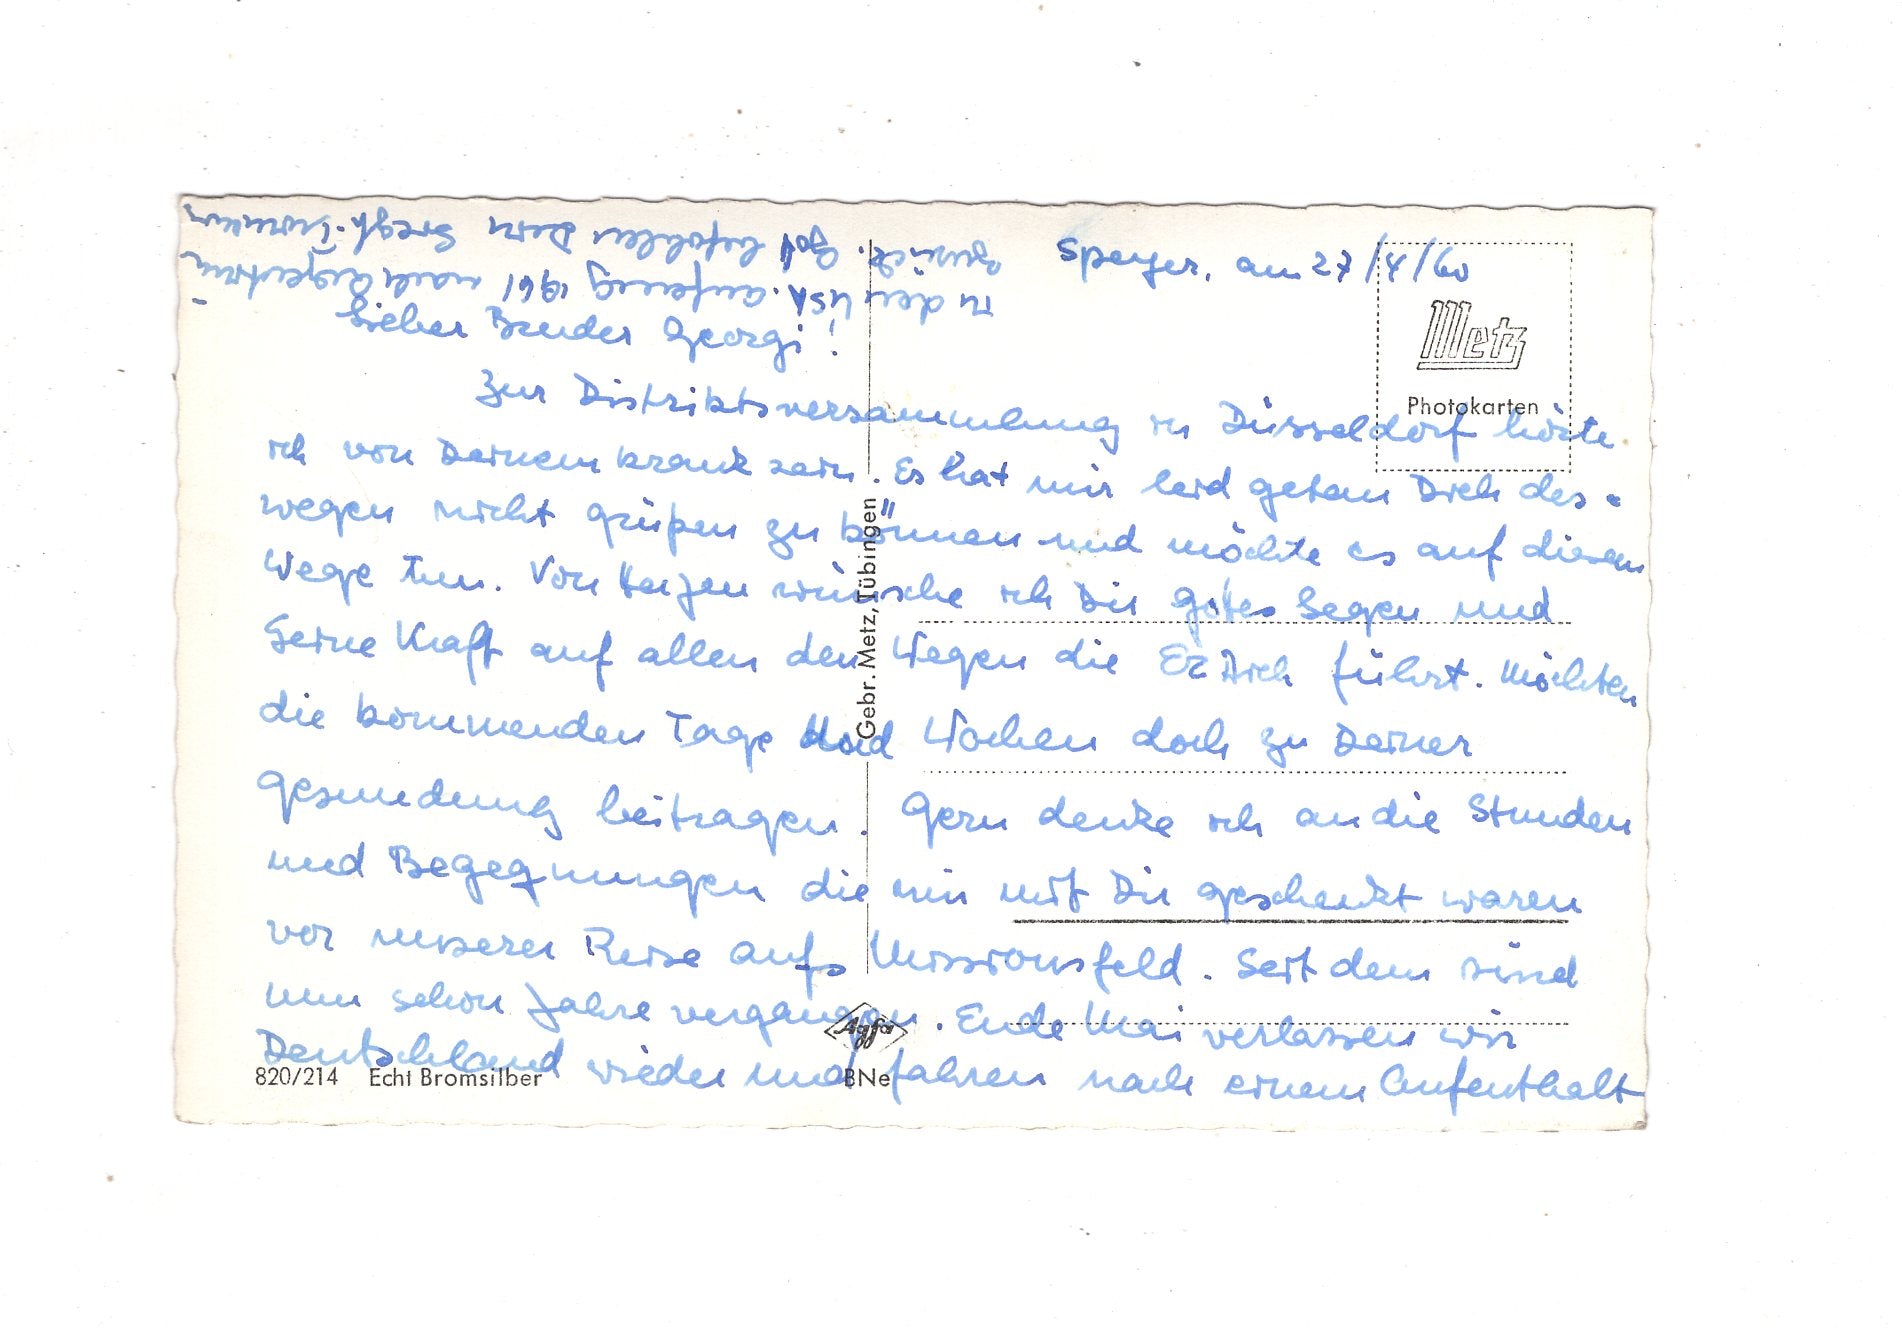 Speyer, am 27/4/60
Lieber Bruder Georgi!
Zur Distriktsversammlung in Düsseldorf hörte
ich von Deinem krank sein. Es hat mir leid getan Dich des-
wegen nicht grüßen zu können und möchte es auf diesem
Wege tun. Von Herzen wünsche ich Dir Gottes Segen und
Seine Kraft auf allen den Wegen die Er Dich führt. Möchten
die kommenden Tage und Wochen doch zu Deiner
Gesundung beitragen. Gern denke ich an die Stunden
und Begegnungen die mir mit Dir geschenkt waren
vor unserer Reise aufs Missionsfeld. Seit dem sind
nun schon Jahre vergangen. Ende Mai verlassen wir
Deutschland wieder und fahren nach einem Aufenthalt
in den USA. Anfang 1961 nach Argentinien
zurück. Gott befohlen Dein Siegf.
Metz
Photokarten
Gebr. Metz, Tübingen
Agfa
820/214 Echt Bromsilber BNe